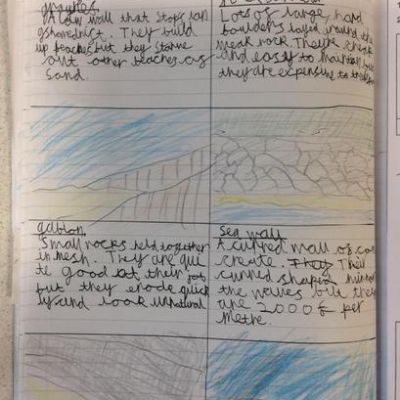 A low wall that stops
They build
up beaches but they starve
out other beaches of
sand.
Lots of large, hard
boulders layed around the
weak rock. They're cheap
and easy to maintain but
they are expensive to
gabion
Small rocks held together
in mesh. They are qui
te good at their job
but they erode quick
ly and look unnatural
Sea wall
A curved wall of con
create. They Their
curved shaped
the waves but they
are 2000£ per
metre.